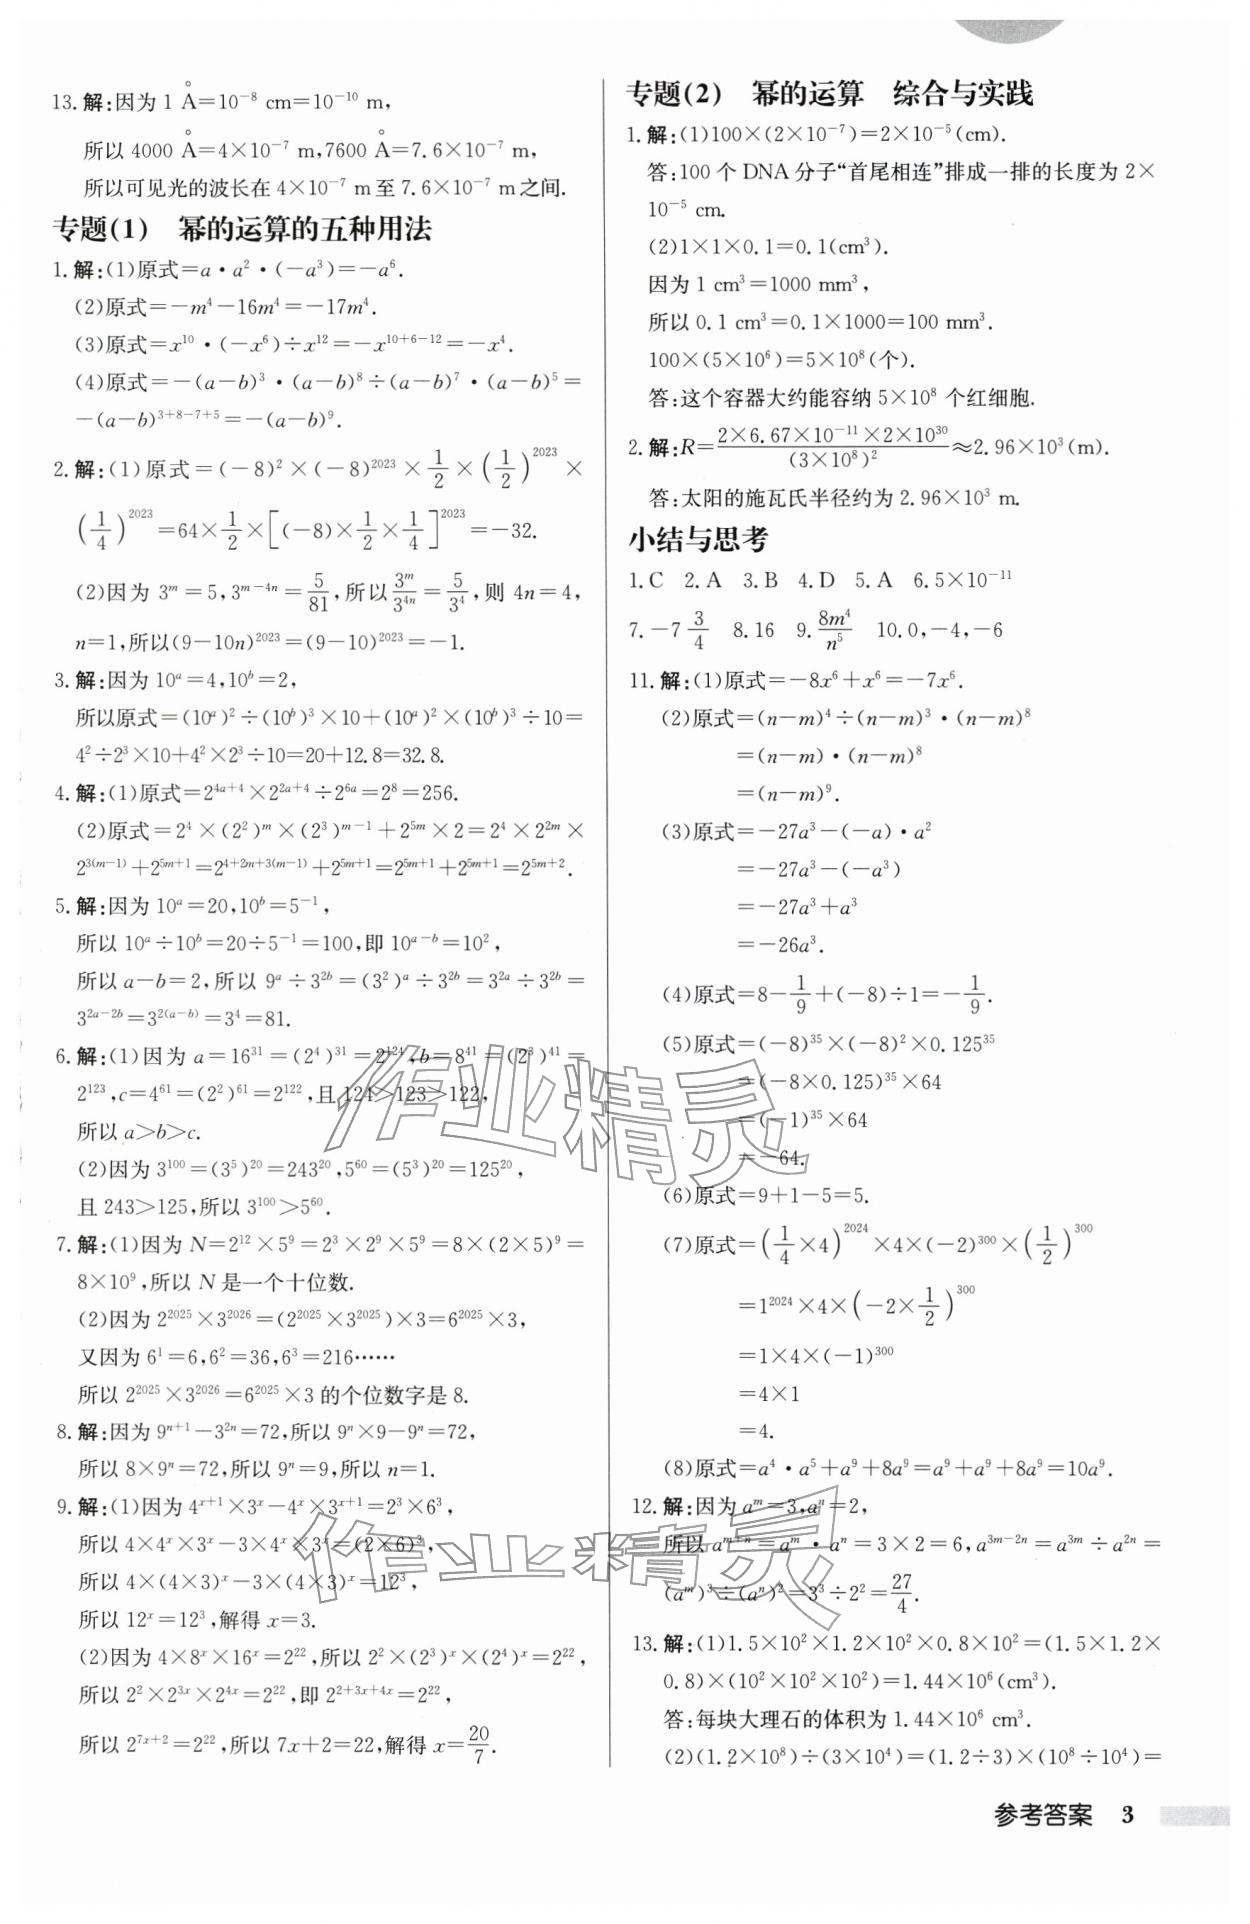 13.解:因为 1 Å=10⁻⁸ cm=10⁻¹⁰ m,
所以 4000 Å=4×10⁻⁷ m,7600 Å=7.6×10⁻⁷ m,
所以可见光的波长在 4×10⁻⁷ m至 7.6×10⁻⁷ m之间.
专题(1) 幂的运算的五种用法
1.解:(1)原式=a·a²·(−a³)=−a⁶.
(2)原式=−m⁴−16m⁴=−17m⁴.
(3)原式=x¹⁰·(−x⁶)÷x¹²=−x¹⁰⁺⁶⁻¹²=−x⁴.
(4)原式=−(a−b)³·(a−b)⁸÷(a−b)⁷·(a−b)⁵=
−(a−b)³⁺⁸⁻⁷⁺⁵=−(a−b)⁹.
2.解:(1)原式=(−8)²×(−8)²⁰²³×1/2×(1/2)²⁰²³×
(1/4)²⁰²³=64×1/2×[(−8)×1/2×1/4]²⁰²³=−32.
(2)因为 3^m=5,3^(m−4n)=5/81,所以 3^m/3^(4n)=5/3⁴,则 4n=4,
n=1,所以(9−10n)²⁰²³=(9−10)²⁰²³=−1.
3.解:因为 10^a=4,10^b=2,
所以原式=(10^a)²÷(10^b)³×10+(10^a)²×(10^b)³÷10=
4²÷2³×10+4²×2³÷10=20+12.8=32.8.
4.解:(1)原式=2^(4a+4)×2^(2a+4)÷2^(6a)=2⁸=256.
(2)原式=2⁴×(2²)^m×(2³)^(m−1)+2^(5m)×2=2⁴×2^(2m)×
2^(3(m−1))+2^(5m+1)=2^(4+2m+3(m−1))+2^(5m+1)=2^(5m+1)+2^(5m+1)=2^(5m+2).
5.解:因为 10^a=20,10^b=5⁻¹,
所以 10^a÷10^b=20÷5⁻¹=100,即 10^(a−b)=10²,
所以 a−b=2,所以 9^a÷3^(2b)=(3²)^a÷3^(2b)=3^(2a)÷3^(2b)=
3^(2a−2b)=3^(2(a−b))=3⁴=81.
6.解:(1)因为 a=16³¹=(2⁴)³¹=2¹²⁴,b=8⁴¹=(2³)⁴¹=
2¹²³,c=4⁶¹=(2²)⁶¹=2¹²²,且 124>123>122,
所以 a>b>c.
(2)因为 3¹⁰⁰=(3⁵)²⁰=243²⁰,5⁶⁰=(5³)²⁰=125²⁰,
且 243>125,所以 3¹⁰⁰>5⁶⁰.
7.解:(1)因为 N=2¹²×5⁹=2³×2⁹×5⁹=8×(2×5)⁹=
8×10⁹,所以 N 是一个十位数.
(2)因为 2²⁰²⁵×3²⁰²⁶=(2²⁰²⁵×3²⁰²⁵)×3=6²⁰²⁵×3,
又因为 6¹=6,6²=36,6³=216……
所以 2²⁰²⁵×3²⁰²⁶=6²⁰²⁵×3 的个位数字是 8.
8.解:因为 9^(n+1)−3^(2n)=72,所以 9^n×9−9^n=72,
所以 8×9^n=72,所以 9^n=9,所以 n=1.
9.解:(1)因为 4^(x+1)×3^x−4^x×3^(x+1)=2³×6³,
所以 4×4^x×3^x−3×4^x×3^x=(2×6)³,
所以 4×(4×3)^x−3×(4×3)^x=12³,
所以 12^x=12³,解得 x=3.
(2)因为 4×8^x×16^x=2²²,所以 2²×(2³)^x×(2⁴)^x=2²²,
所以 2²×2^(3x)×2^(4x)=2²²,即 2^(2+3x+4x)=2²²,
所以 2^(7x+2)=2²²,所以 7x+2=22,解得 x=20/7.
专题(2) 幂的运算 综合与实践
1.解:(1)100×(2×10⁻⁷)=2×10⁻⁵(cm).
答:100 个 DNA 分子“首尾相连”排成一排的长度为 2×
10⁻⁵ cm.
(2)1×1×0.1=0.1(cm³).
因为 1 cm³=1000 mm³,
所以 0.1 cm³=0.1×1000=100 mm³.
100×(5×10⁶)=5×10⁸(个).
答:这个容器大约能容纳 5×10⁸ 个红细胞.
2.解:R=(2×6.67×10⁻¹¹×2×10³⁰)/(3×10⁸)²≈2.96×10³(m).
答:太阳的施瓦氏半径约为 2.96×10³ m.
小结与思考
1.C 2.A 3.B 4.D 5.A 6.5×10⁻¹¹
7.−7 3/4 8.16 9.8m⁴/n⁵ 10.0,−4,−6
11.解:(1)原式=−8x⁶+x⁶=−7x⁶.
(2)原式=(n−m)⁴÷(n−m)³·(n−m)⁸
=(n−m)·(n−m)⁸
=(n−m)⁹.
(3)原式=−27a³−(−a)·a²
=−27a³−(−a³)
=−27a³+a³
=−26a³.
(4)原式=8−1/9+(−8)÷1=−1/9.
(5)原式=(−8)³⁵×(−8)²×0.125³⁵
=(−8×0.125)³⁵×64
=(−1)³⁵×64
=−64.
(6)原式=9+1−5=5.
(7)原式=(1/4×4)²⁰²⁴×4×(−2)³⁰⁰×(1/2)³⁰⁰
=1²⁰²⁴×4×(−2×1/2)³⁰⁰
=1×4×(−1)³⁰⁰
=4×1
=4.
(8)原式=a⁴·a⁵+a⁹+8a⁹=a⁹+a⁹+8a⁹=10a⁹.
12.解:因为 a^m=3,a^n=2,
所以 a^(m+n)=a^m·a^n=3×2=6,a^(3m−2n)=a^(3m)÷a^(2n)=
(a^m)³÷(a^n)²=3³÷2²=27/4.
13.解:(1)1.5×10²×1.2×10²×0.8×10²=(1.5×1.2×
0.8)×(10²×10²×10²)=1.44×10⁶(cm³).
答:每块大理石的体积为 1.44×10⁶ cm³.
(2)(1.2×10⁸)÷(3×10⁴)=(1.2÷3)×(10⁸÷10⁴)=
作业精灵
作业精灵
参考答案 3